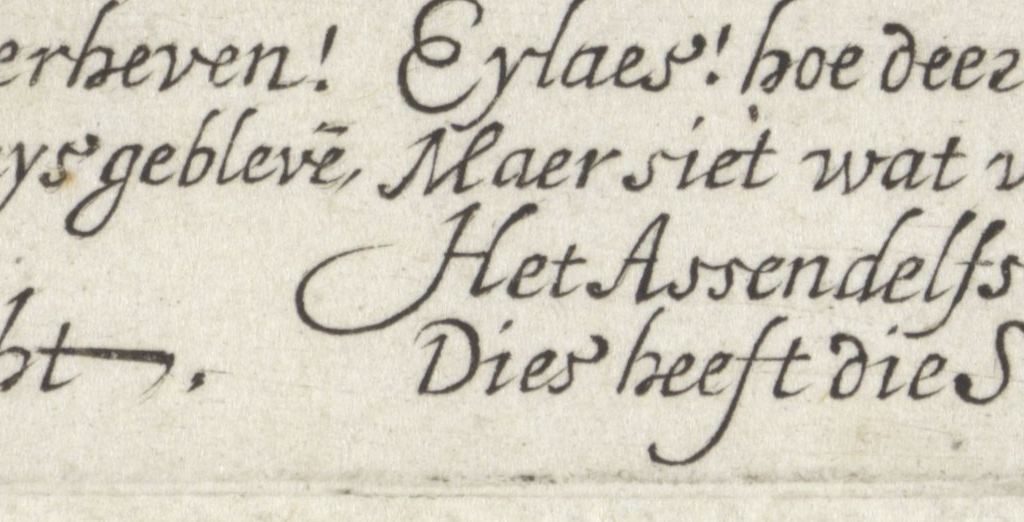 erheven! Eylaes! hoe deer
ys geblevē, Maer siet wat
Het Assendelfs
ht. Dies heeft die S